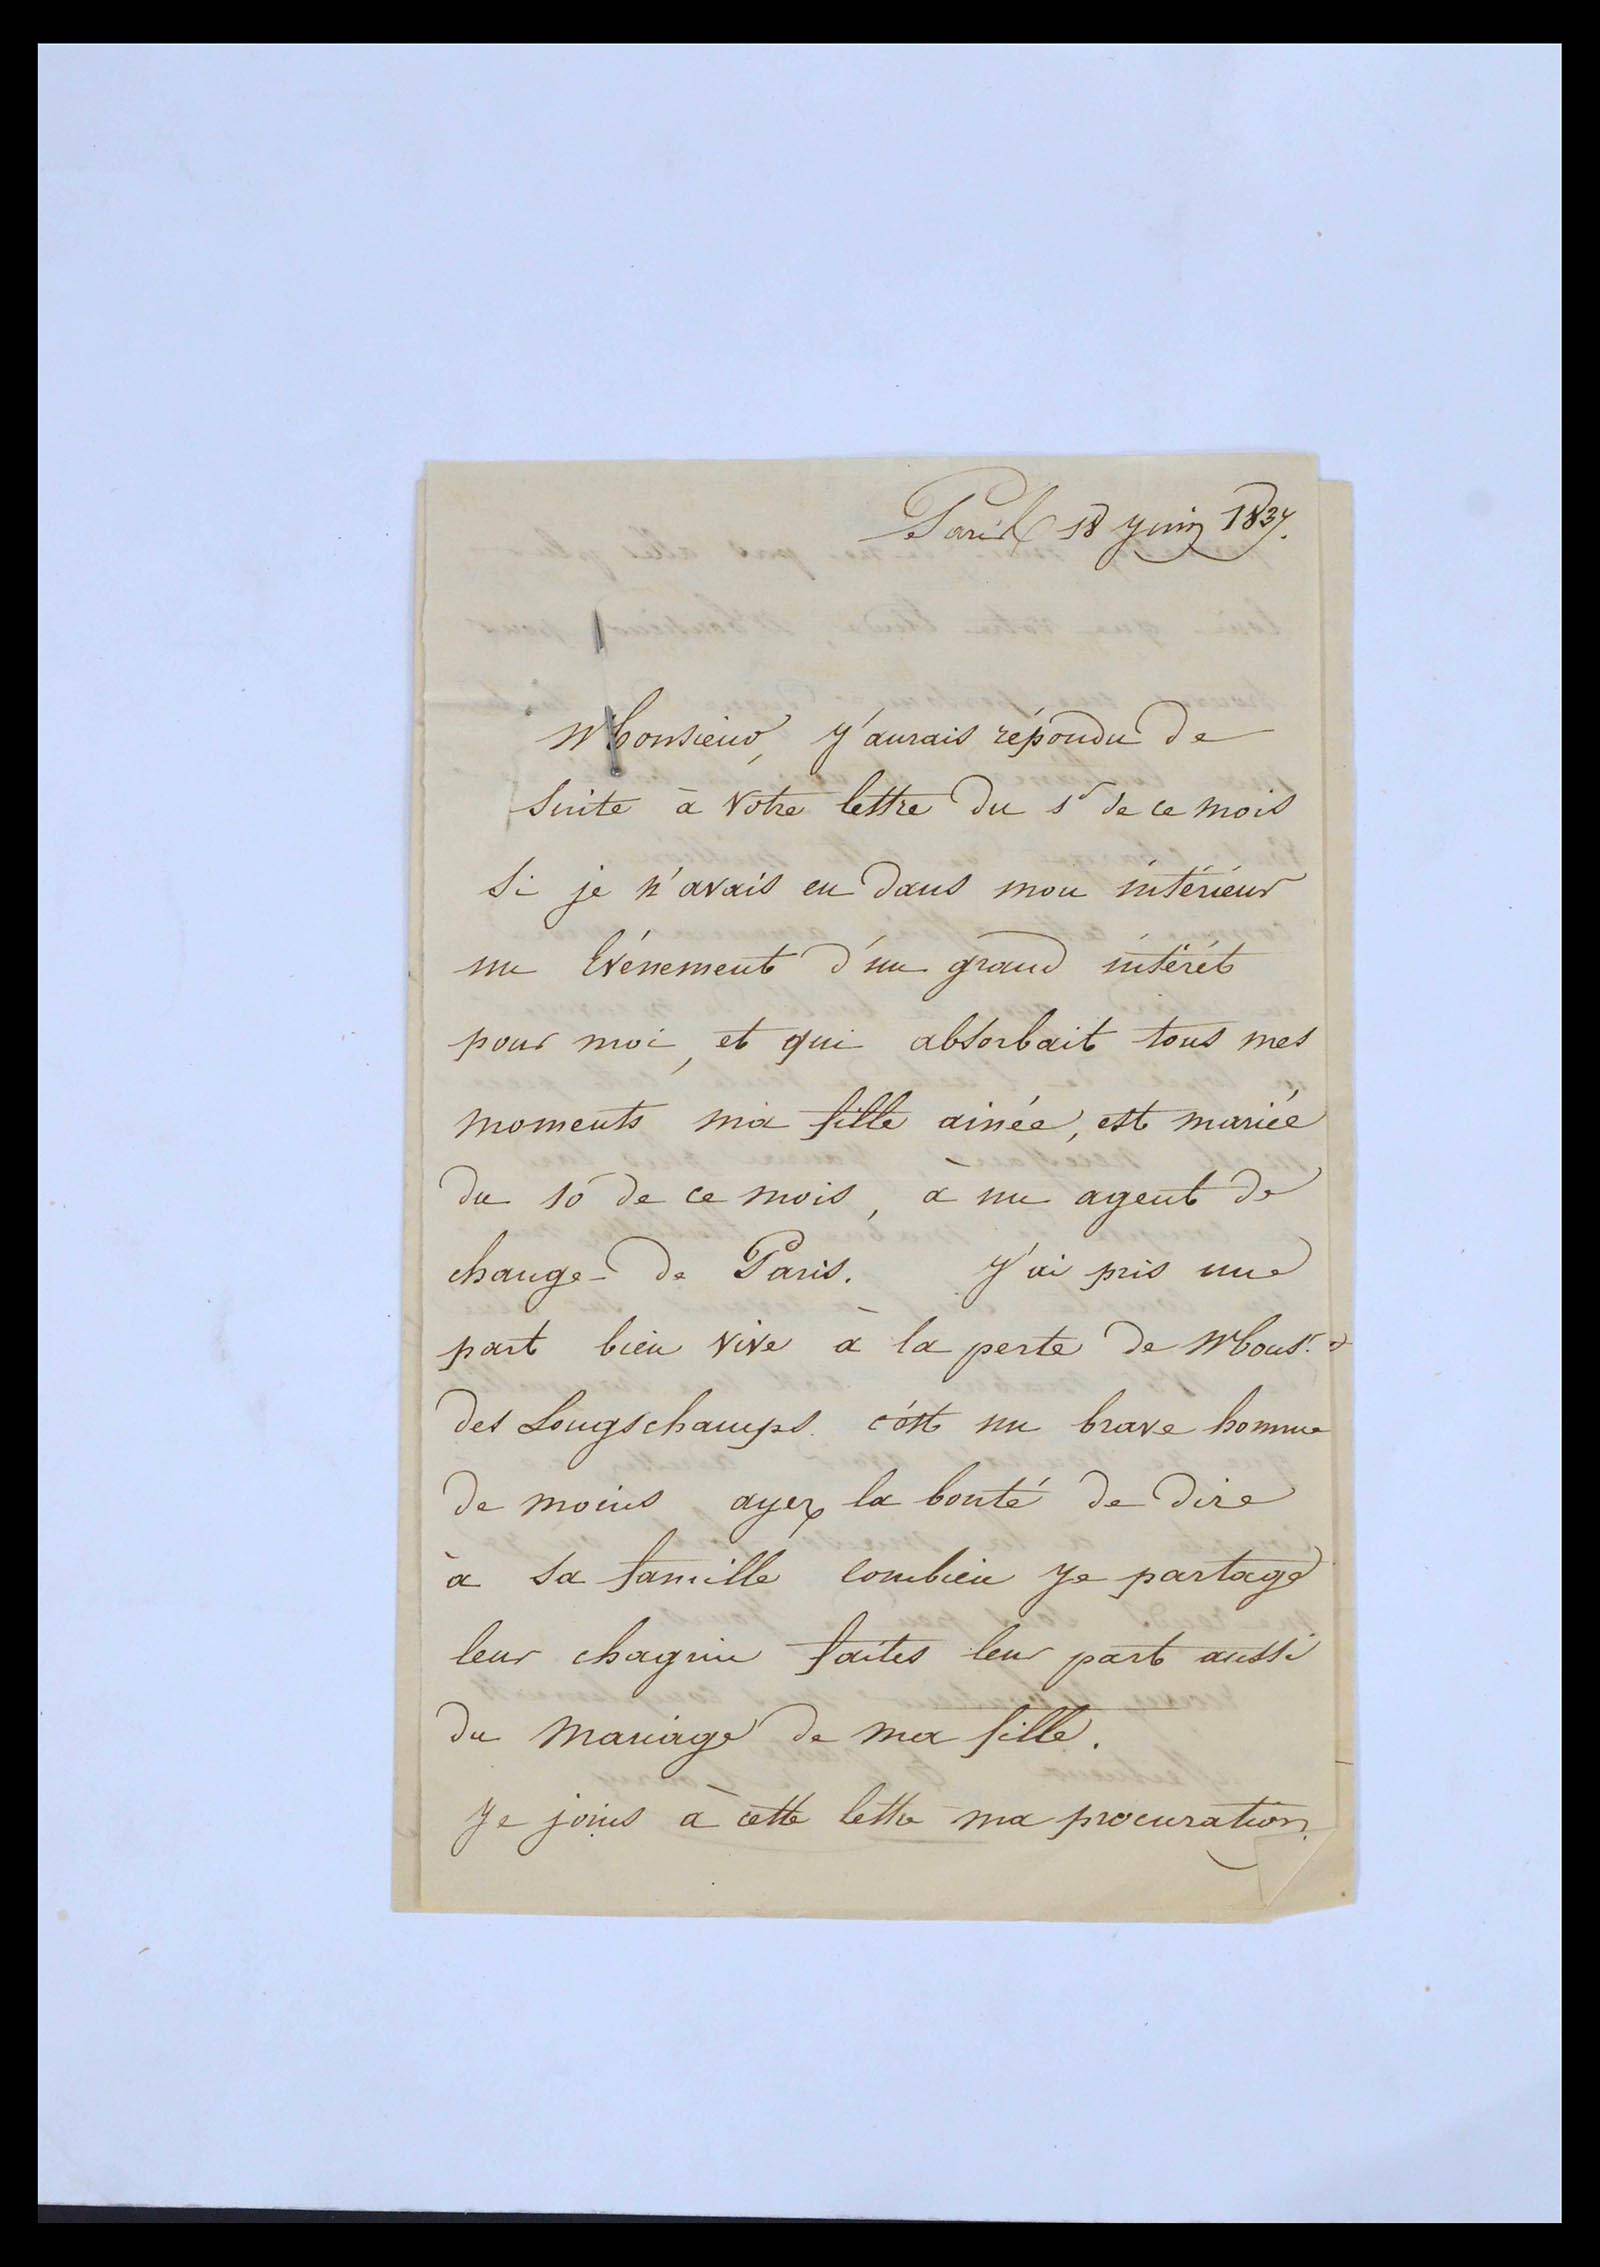 Paris 18 juin 1837.
Monsieur, j'aurais répondu de
suite à votre lettre du 1r de ce mois
si je n'avais eu dans mon intérieur
un Événement d'un grand intérêt
pour moi, et qui absorbait tous mes
moments ma fille ainée, est mariée
du 10 de ce mois, à un agent de
change de Paris. J'ai pris une
part bien vive à la perte de Monsr.
des Longschamps. c'est un brave homme
de moins ayez la bonté de dire
à sa famille combien je partage
leur chagrin faites leur part aussi
du mariage de ma fille.
Je joins à cette lettre ma procuration.